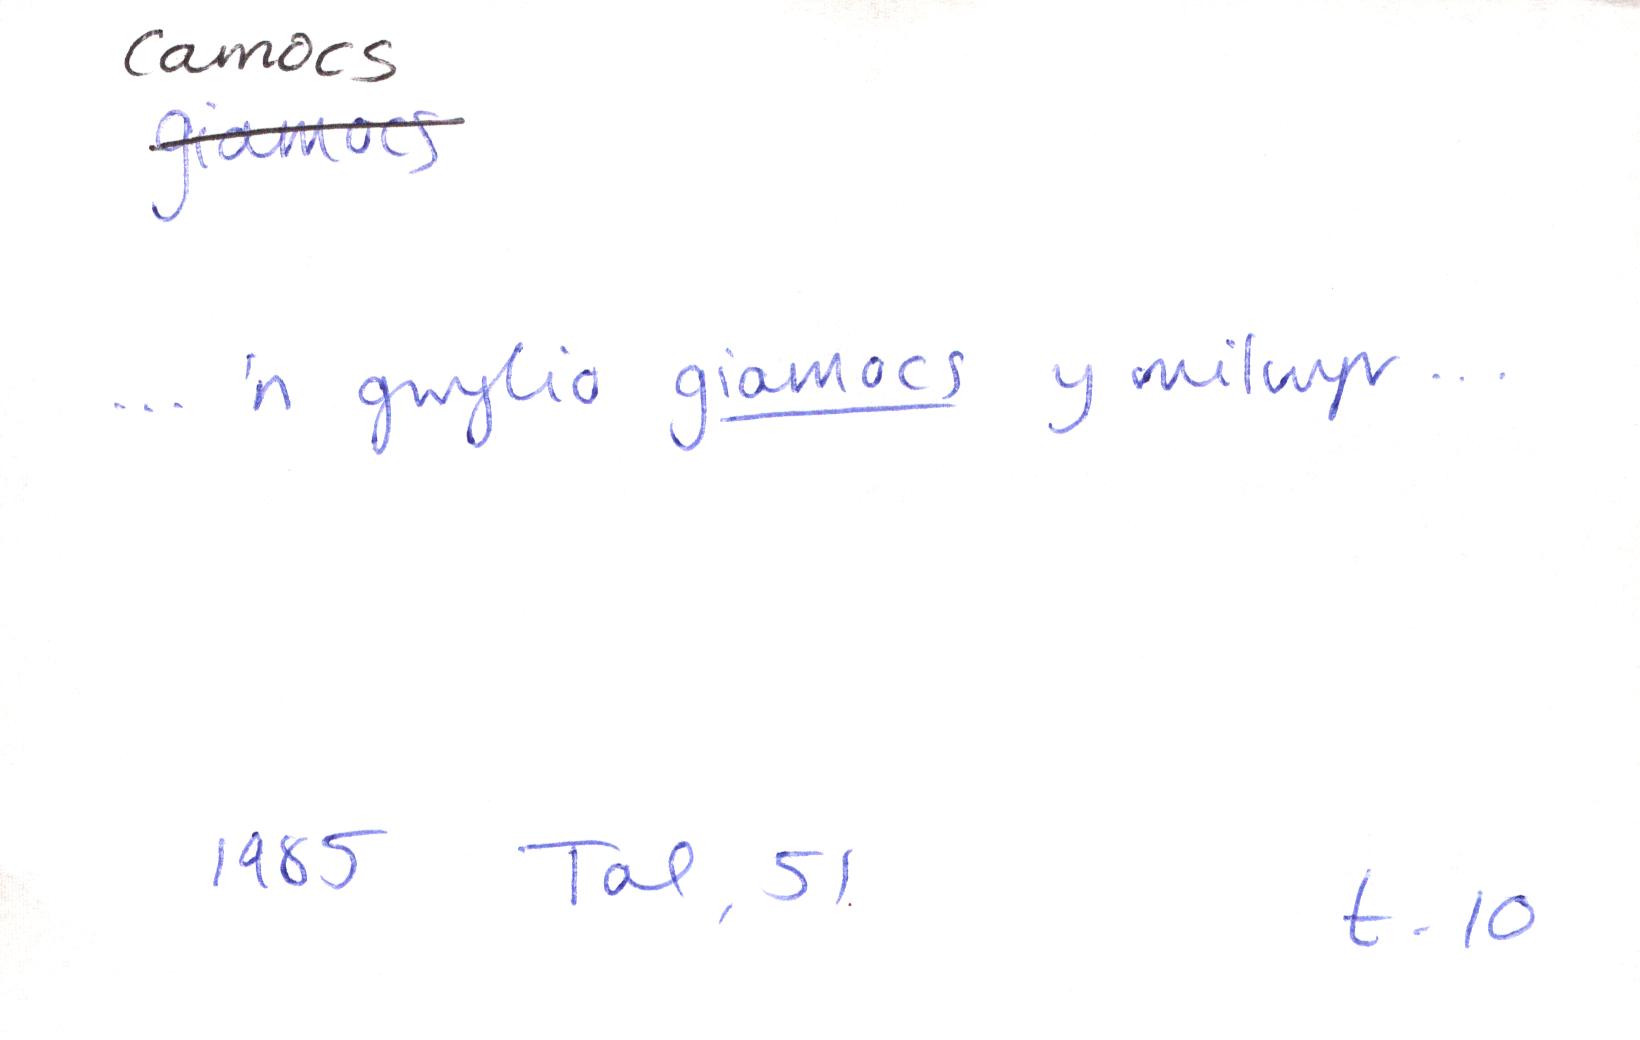 camocs
giamocs
... 'n gwylio giamocs y milwyr ...
1985 Tal, 51 t. 10